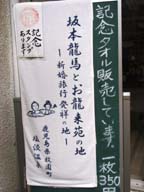 記念タオル販売しています。一枚350円
記念
スタンプ
あります
坂本龍馬とお龍来苑の地
―新婚旅行発祥の地―
鹿児島県牧園町
塩浸温泉